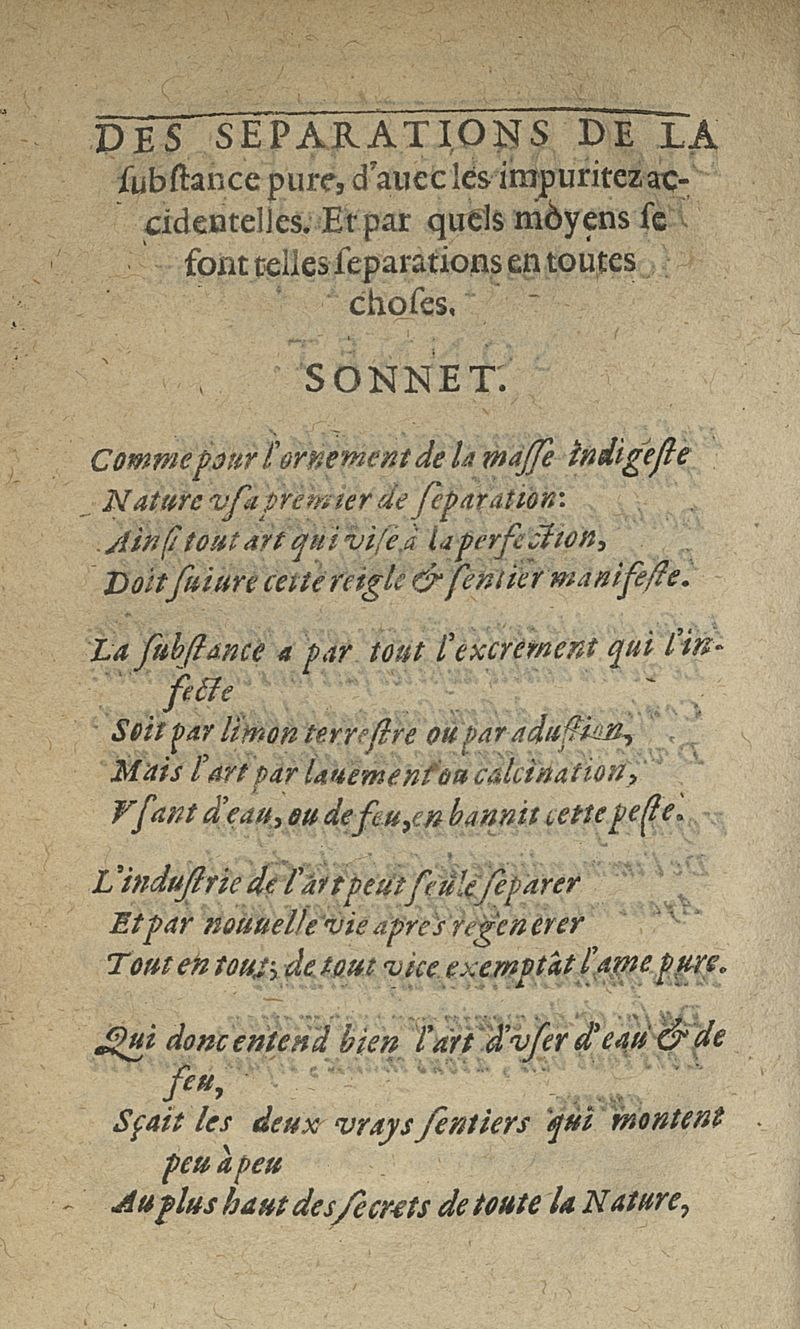 DES SEPARATIONS DE LA
ſubſtance pure, d'auec les impuritez ac-
cidentelles. Et par quels mòyens ſe
font telles ſeparations en toutes
choſes.
SONNET.
Comme pour l'ornement de la maſſe indigeſte
Nature vſa premier de ſeparation:
Ainſi tout art qui viſe à la perfection,
Doit ſuiure cette reigle & ſentier manifeſte.
La ſubſtance a par tout l'excrement qui l'in-
fecte
Soit par limon terreſtre ou par aduſtion,
Mais l'art par lauement ou calcination,
Vſant d'eau, ou de feu, en bannit cette peſte.
L'induſtrie de l'art peut ſeule ſeparer
Et par nouuelle vie apres regenerer
Tout en tout; de tout vice exemptât l'ame pure.
Qui donc entend bien l'art d'vſer d'eau & de
feu,
Sçait les deux vrays ſentiers qui montent
peu à peu
Au plus haut des ſecrets de toute la Nature,